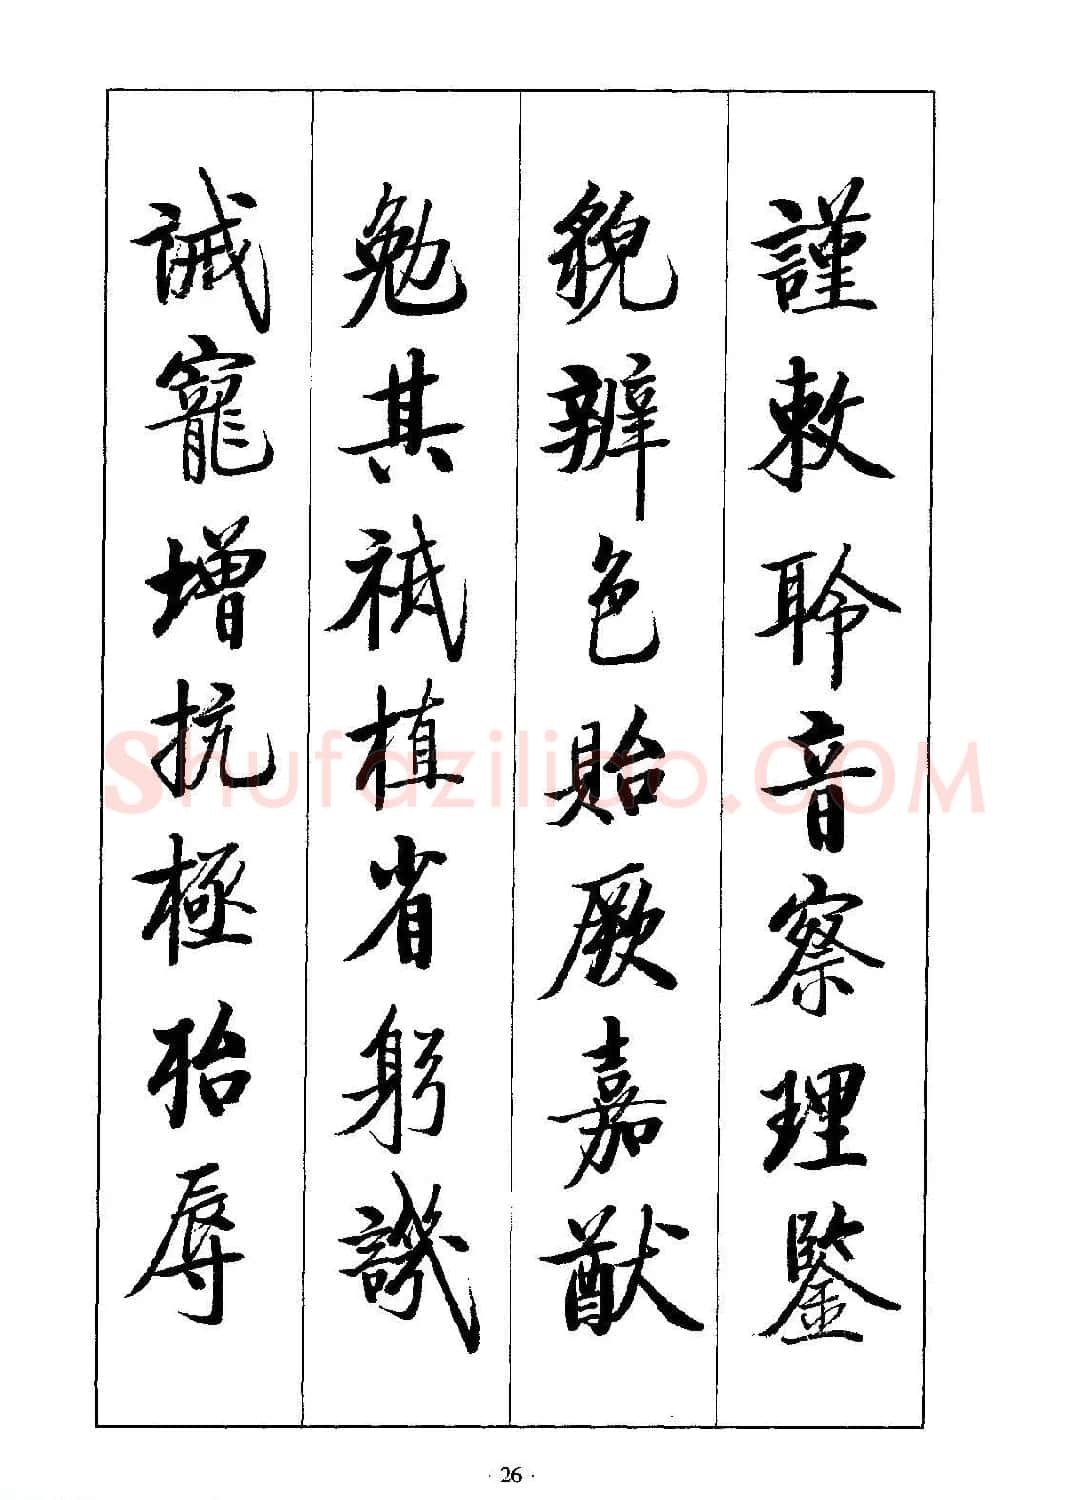 謹敕聆音察理鑒
貌辨色貽厥嘉猷
勉其祗植省躬譏
誡寵增抗極殆辱
Shufaziliao.COM
· 26 ·